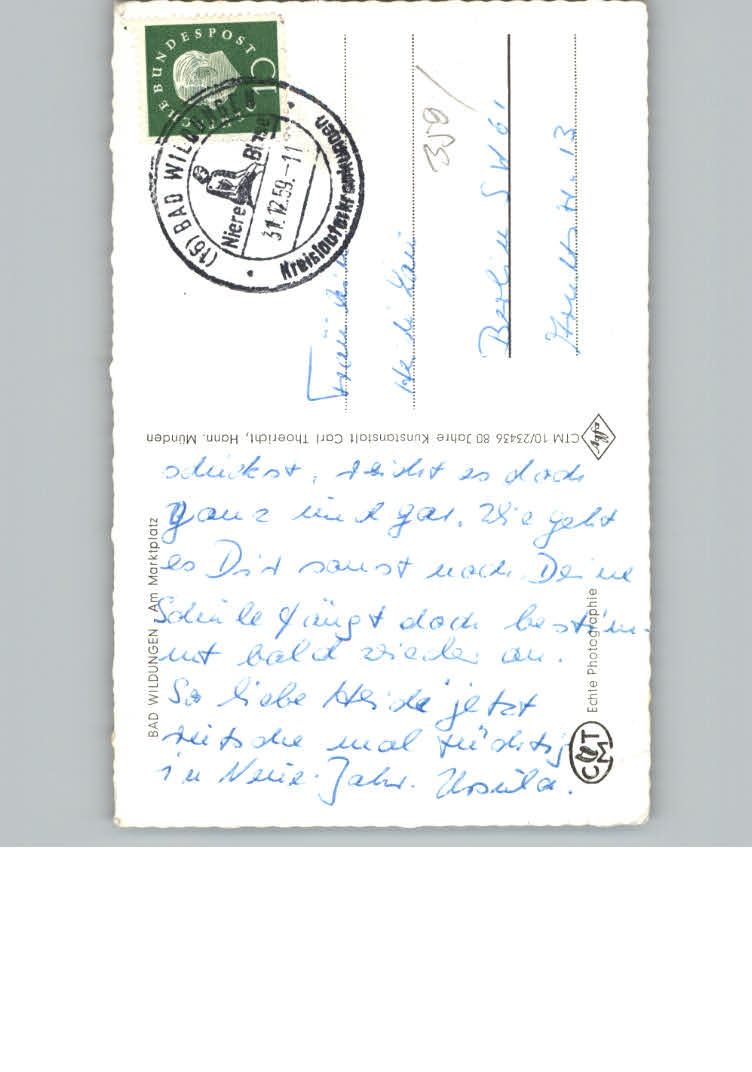 DEUTSCHE BUNDESPOST
10
(16) BAD WILDUNGEN
Niere Blase
31.12.59.-11
Kreislauferkrankungen
359/
Fräulein
Heidi
Berlin SW 61
13
CTM 10/23436 80 Jahre Kunstanstalt Carl Thoericht, Hann. Münden
efbe
BAD WILDUNGEN, Am Marktplatz
schickst, reicht es doch
ganz und gar. Wie geht
es Dir sonst noch. Deine
Schule fängt doch bestim-
mt bald wieder an.
So liebe Heide jetzt
rutsche mal tüchtig
in Neue Jahr. Ursula.
CTM
Echte Photographie